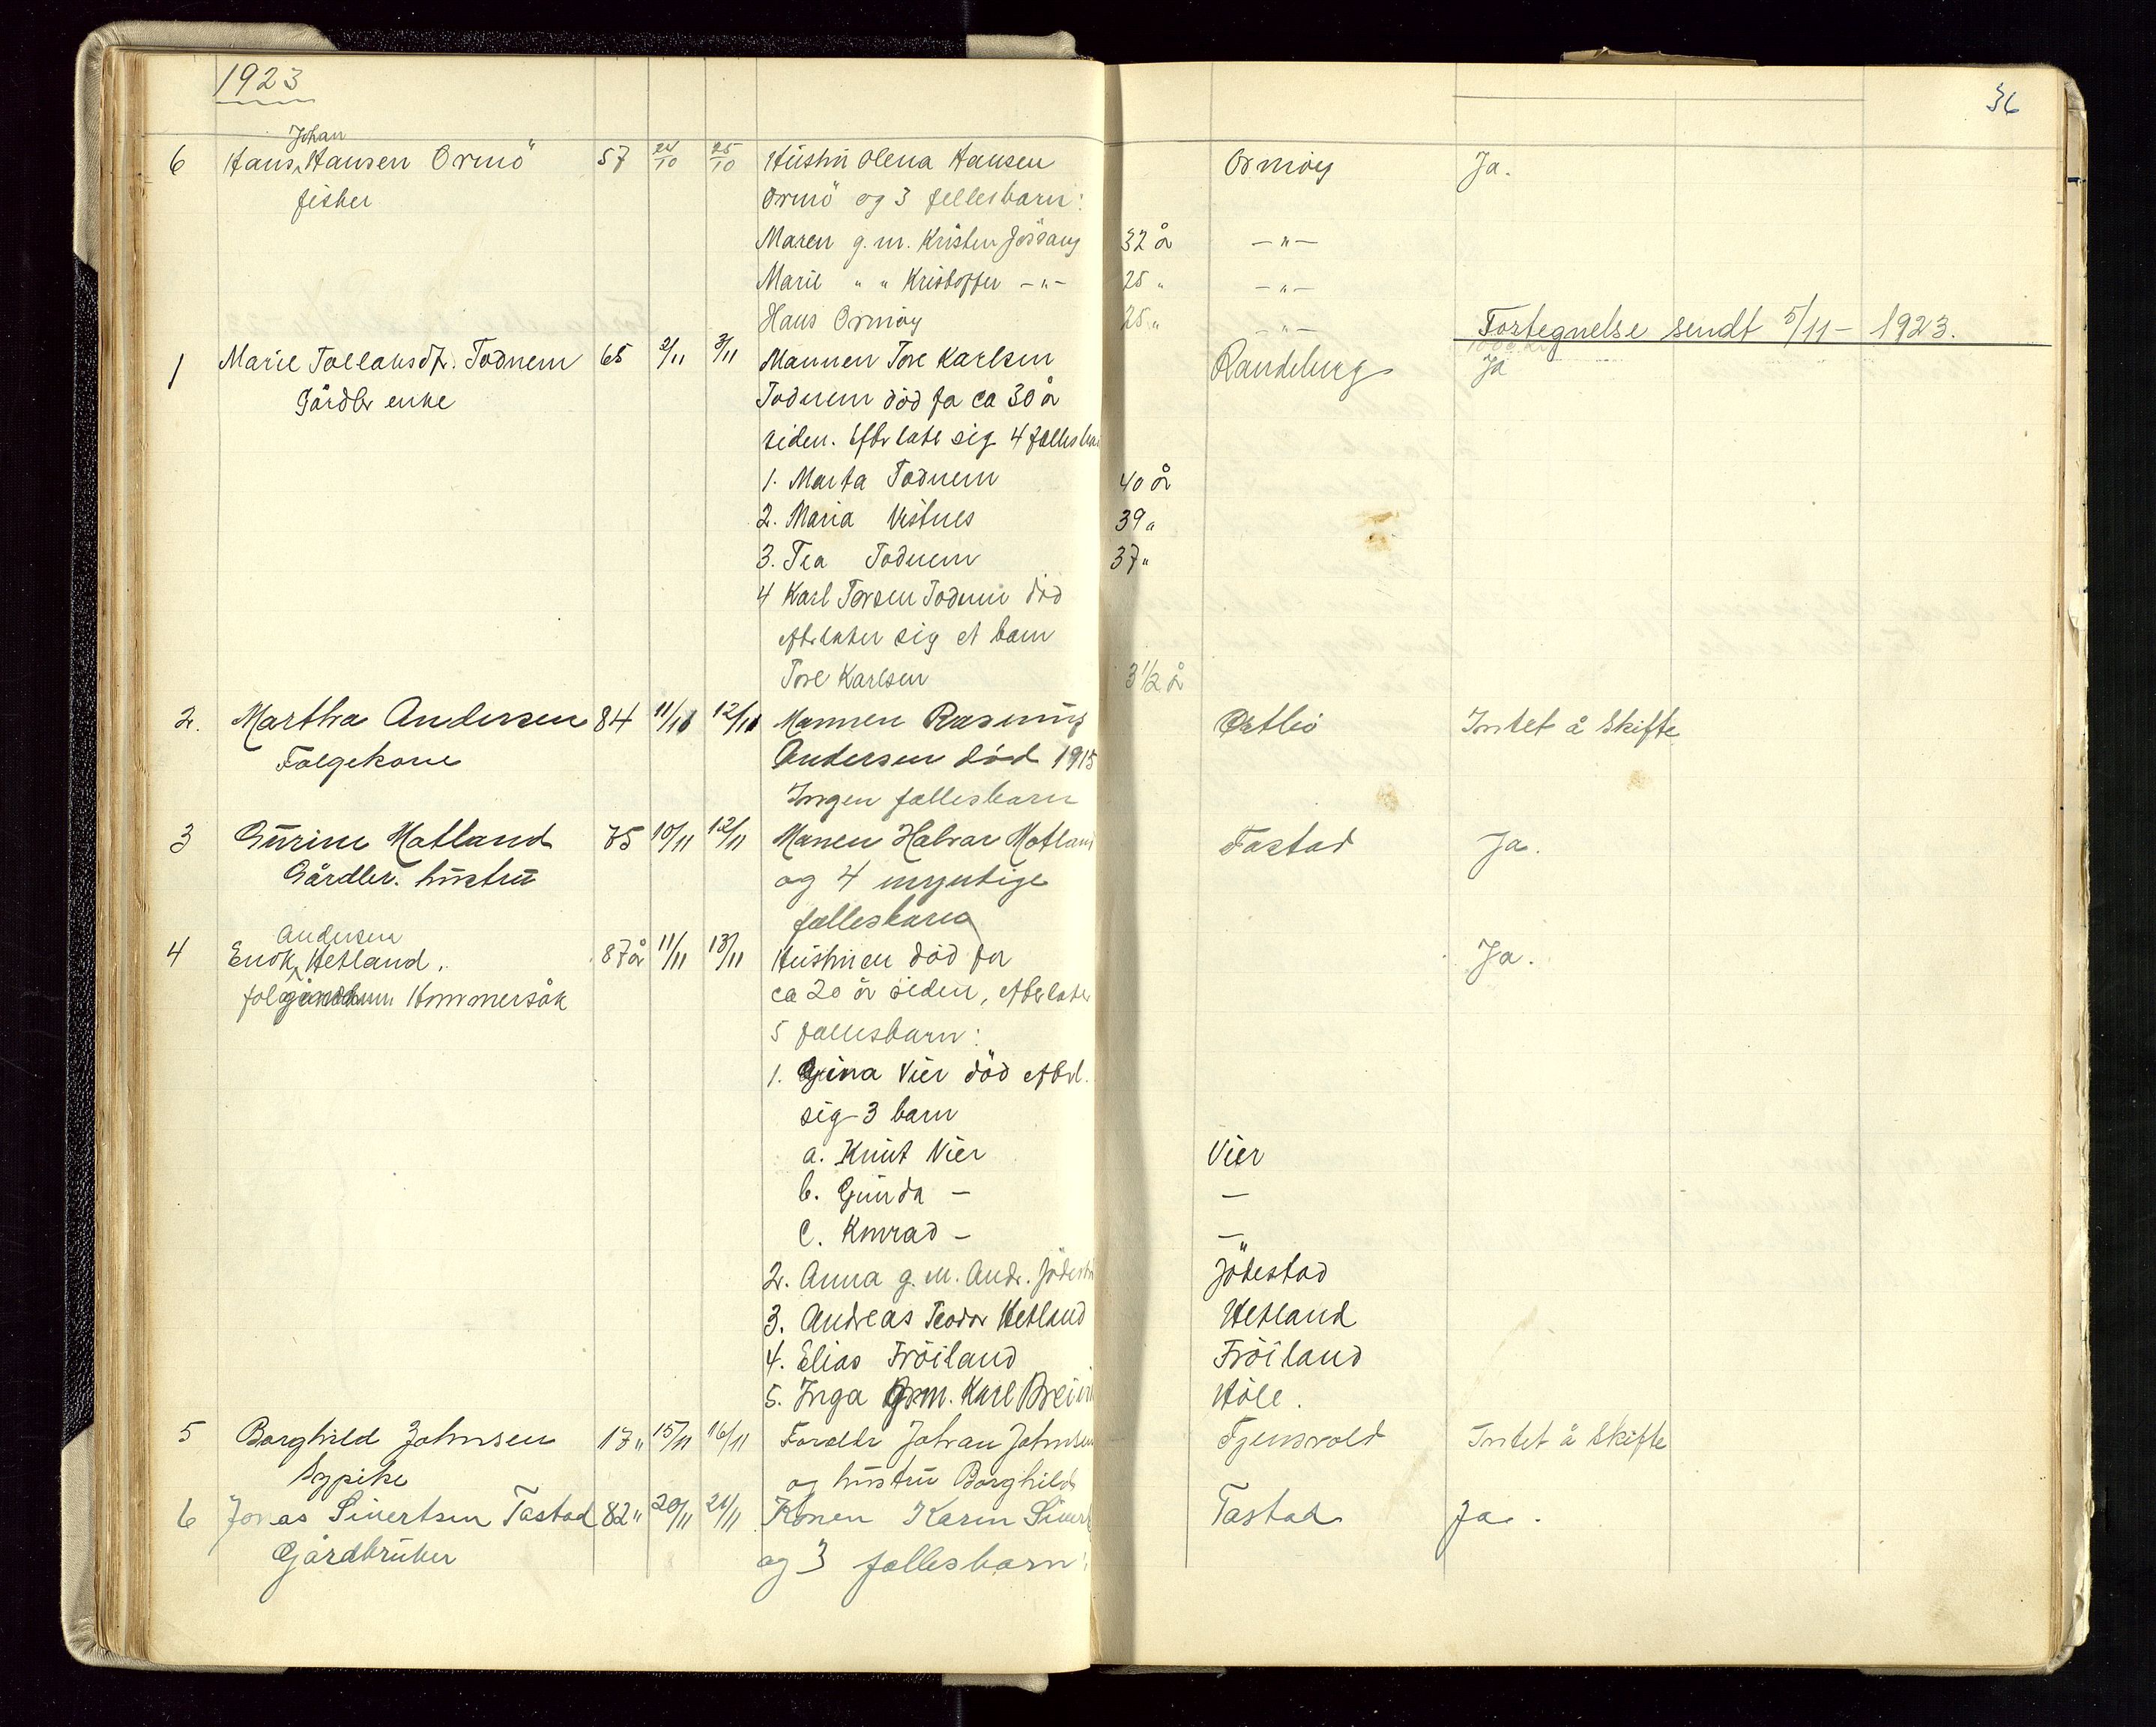 1923
36
Johan
6 Hans Hansen Ormö 57 24/10 25/10 Hustru Olena Hansen Ormöy Ja.
fisker Ormö og 3 fellesbarn:
Maren g.m. Kristen Jössang 32 år -"-
Marie " " Kristoffer -"- 25 " -"-
Hans Ormöy 25 " -"-
Fortegnelse sendt 5/11 - 1923.
1 Marie Tollaksdt. Todnem 65 2/11 3/11 Mannen Tore Karlsen Randeberg Ja
Gårdbr enke Todnem död for ca 30 år
siden. Efterlate sig 4 felles
1. Marta Todnem 40 år
2. Maria Vistnes 39 "
3. Tea Todnem 37 "
4 Karl Torsen Todnem död
efterlater sig et barn
Tore Karlsen 3 1/2 år
2. Martha Andersen 84 11/11 12/11 Mannen Rasmus Intet å skifte
Folgekone Andersen död 1915
Ingen fellesbarn
3 Gurine Motland 75 10/11 12/11 Manen Halvar Motland Tastad Ja.
Gårdbr. hustru og 4 myntige
fellesbarn
Andersen
4 Enok Hetland. 87 år 11/11 13/11 Hustruen död for Ja.
Hommersåk ca 20 år siden, efterlater
5 fellesbarn:
1. Gina Vier död efterl.
sig 3 barn
a. Knut Vier Vier
b. Gunda - -
c. Konrad - -
2. Anna g.m. Andr. Jödestad
3. Andreas Teodor Hetland Hetland
4. Elias Fröiland Fröiland
5. Inga g.m. Karl Höle.
5 Borghild Johnsen 17 " 15/11 16/11 Foreldr Johan Johnsen Tjensvold Intet å skifte
Sypike og hustru Borghild
6 Jonas Sivertsen Tastad 82 " 20/11 21/11 Konen Karen Tastad Ja.
Gårdbruker og 3 fellesbarn: